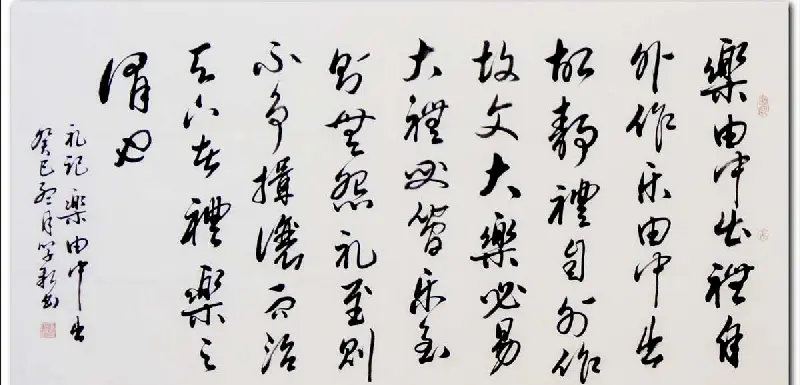 樂由中出禮自
外作乐由中出
故静禮自外作
故文大樂必易
大禮必简乐至
则無怨礼至则
不争揖讓而治
天下者禮樂之
谓也
礼记樂由中出
癸巳冬月